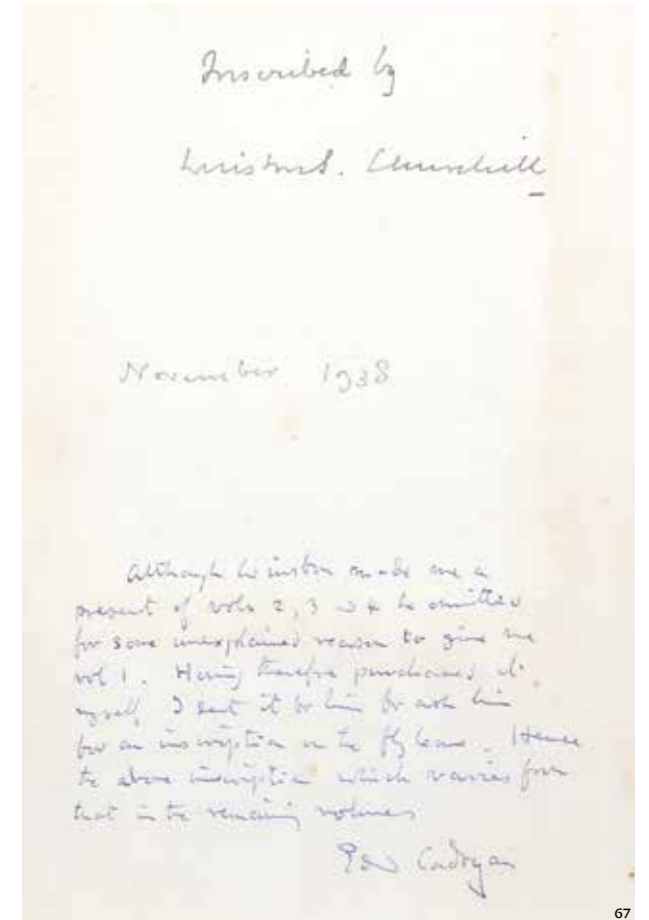 Inscribed by
Winston S. Churchill
November 1938
Although Winston made me a
present of vols 2, 3 & 4 he omitted
for some unexplained reason to give me
vol 1. Having therefore purchased it
myself I sent it to him to ask him
for an inscription on the fly leaf. Hence
the above inscription which varies from
that in the remaining volumes
Edw Cadogan
67